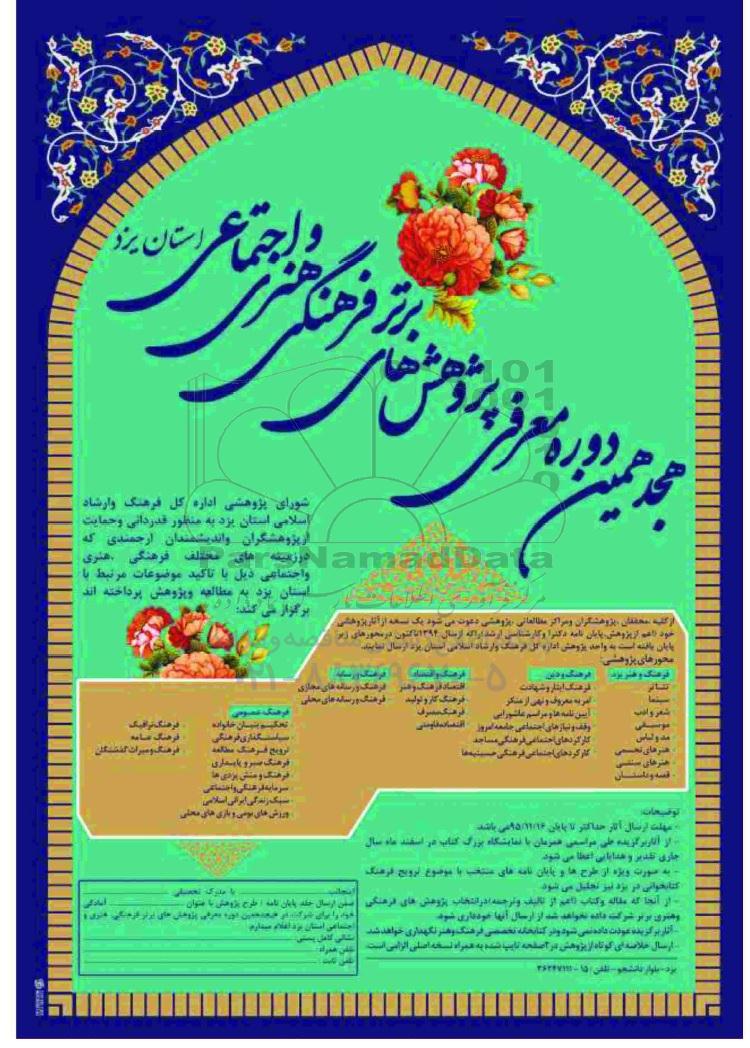 هجدهمین
دوره معرفی
پژوهش‌های
برتر فرهنگی
هنری
و اجتماعی
استان یزد
شورای پژوهشی اداره کل فرهنگ وارشاد
اسلامی استان یزد به منظور قدردانی وحمایت
ازپژوهشگران واندیشمندان ارجمندی که
درزمینه های مختلف فرهنگی ،هنری
واجتماعی ذیل با تاکید موضوعات مرتبط با
استان یزد به مطالعه وپژوهش پرداخته اند
برگزار می کند:
ParsNamadData
ازکلیه محققان ،پژوهشگران ومراکز مطالعاتی ،پژوهشی دعوت می شود یک نسخه از آثار پژوهشی
خود (اعم ازپژوهش،پایان نامه دکترا وکارشناسی ارشد)راکه ازسال ۱۳۹۴تاکنون درمحورهای زیر
پایان یافته است به واحد پژوهش اداره کل فرهنگ وارشاد اسلامی استان یزد ارسال نمایند.
محورهای پژوهشی:
فرهنگ و هنر یزد
تئاتر
سینما
شعر و ادب
موسیقی
مد و لباس
هنرهای تجسمی
هنرهای سنتی
قصه و داستان
فرهنگ و دین
فرهنگ ایثار و شهادت
امر به معروف و نهی از منکر
آیین نامه ها و مراسم عاشورایی
وقف و نیازهای اجتماعی جامعه امروز
کارکردهای اجتماعی فرهنگی مساجد
کارکردهای اجتماعی فرهنگی حسینیه‌ها
فرهنگ و اقتصاد
اقتصاد فرهنگ و هنر
فرهنگ کار و تولید
فرهنگ مصرف
اقتصاد مقاومتی
فرهنگ و رسانه
فرهنگ و رسانه های مجازی
فرهنگ و رسانه های محلی
فرهنگ عمومی
تحکیم بنیان خانواده
سیاستگذاری فرهنگی
ترویج فرهنگ مطالعه
فرهنگ صبر و پایداری
فرهنگ و منش یزدی ها
سرمایه فرهنگی و اجتماعی
سبک زندگی ایرانی اسلامی
ورزش های بومی و بازی های محلی
فرهنگ ترافیک
فرهنگ عامه
فرهنگ و میراث گذشتگان
توضیحات:
- مهلت ارسال آثار حداکثر تا پایان ۹۵/۱۱/۱۶می باشد.
- از آثاربرگزیده طی مراسمی همزمان با نمایشگاه بزرگ کتاب در اسفند ماه سال
جاری تقدیر و هدایایی اعطا می شود.
- به صورت ویژه از طرح ها و پایان نامه های منتخب با موضوع ترویج فرهنگ
کتابخوانی در یزد نیز تجلیل می شود.
- از آنجا که مقاله وکتاب (اعم از تالیف وترجمه)درانتخاب پژوهش های فرهنگی
وهنری برتر شرکت داده نخواهد شد از ارسال آنها خودداری شود.
- آثار برگزیده عودت داده نمی شود ودر کتابخانه تخصصی فرهنگ وهنر نگهداری خواهدشد.
- ارسال خلاصه ای کوتاه ازپژوهش در ۲صفحه تایپ شده به همراه نسخه اصلی الزامی است.
یزد- بلوار دانشجو - تلفن: ۱۵ - ۳۶۲۴۷۱۱۱
اینجانب با مدرک تحصیلی
ضمن ارسال جلد پایان نامه / طرح پژوهش با عنوان آمادگی
خود را برای شرکت در هیجدهمین دوره معرفی پژوهش های برتر فرهنگی، هنری و
اجتماعی استان یزد اعلام میدارم.
نشانی کامل پستی:
تلفن همراه:
تلفن ثابت: